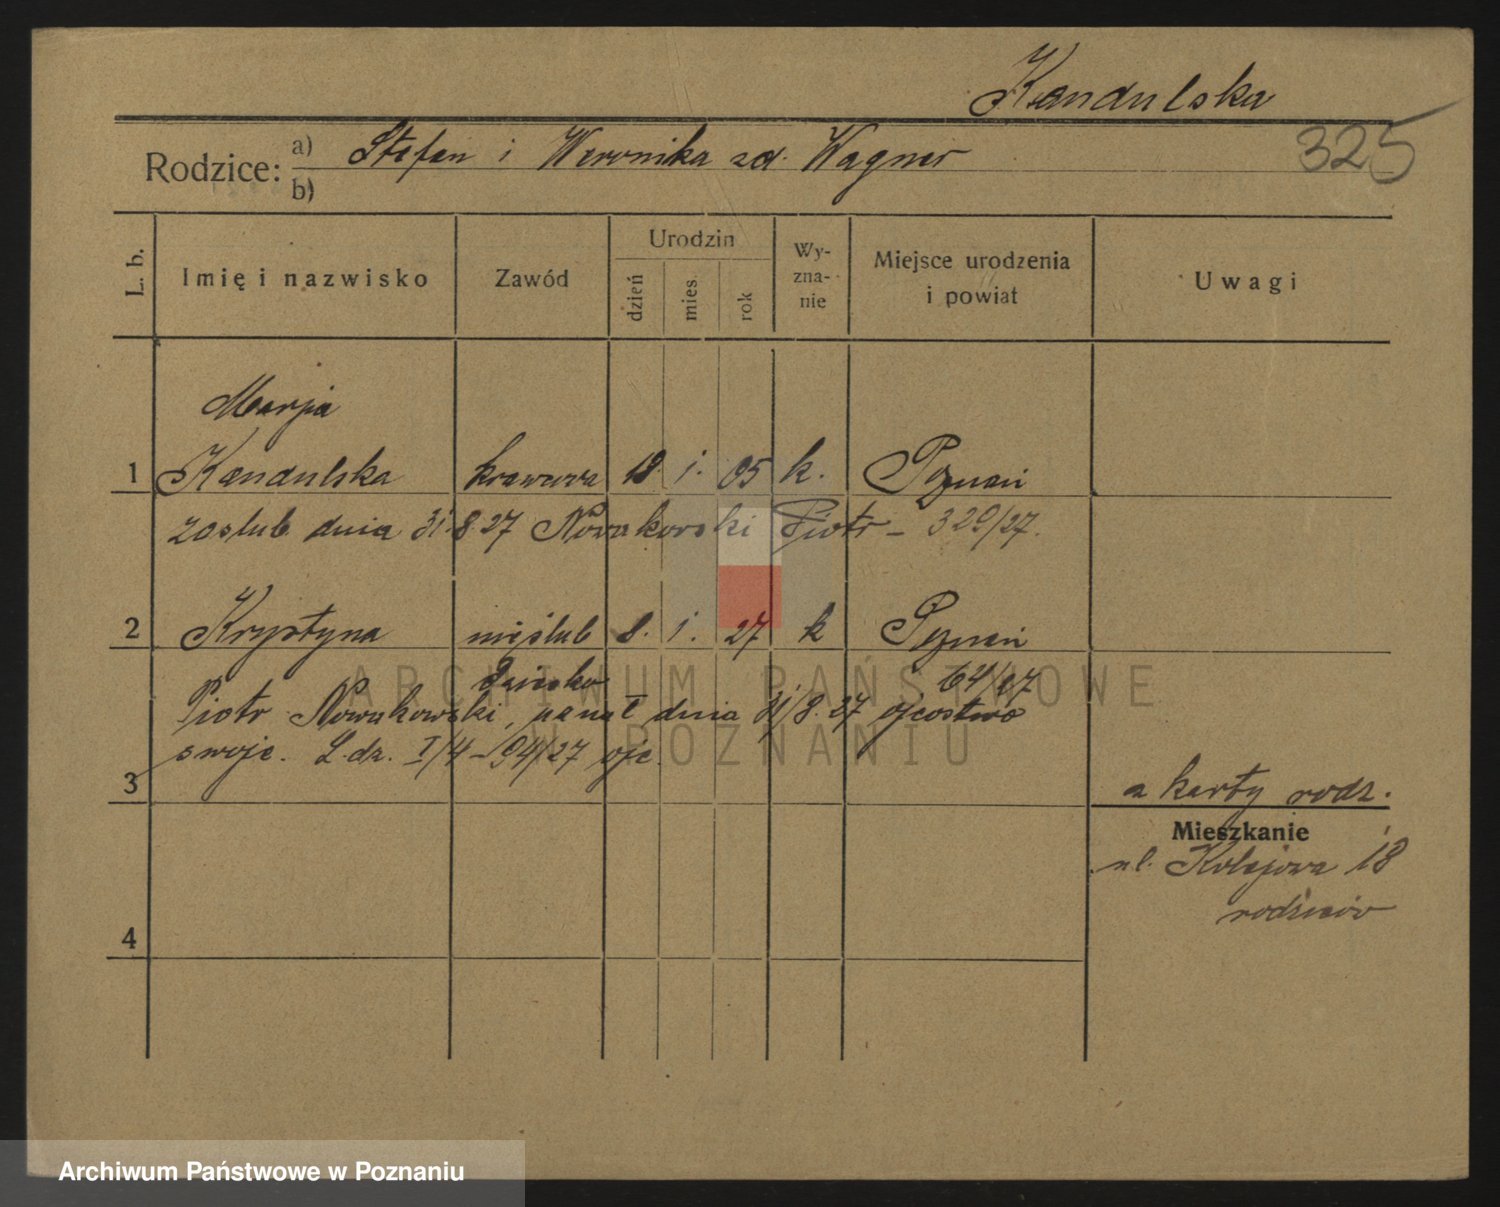 Kandulska
325
Rodzice:
a) Stefan i Weronika zd. Wagner
b)
L. b.
Imię i nazwisko
Zawód
Urodzin
dzień
mies.
rok
Wy-
zna-
nie
Miejsce urodzenia
i powiat
Uwagi
Marja
1 Kandulska krawcowa 18. 1. 05 k. Poznań
zaślub. dnia 31.8.27 Nowakowski Piotr - 329/27.
2 Krystyna nieślub 8. 1. 27 k Poznań
dziecko 64/27
Piotr Nowakowski, uznał dnia 31/8.27 ojcostwo
swoje. L.dz. I/4-194/27 ojc.
3
z karty rodz.
Mieszkanie
ul. Kolejowa 18
rodziców
4
ARCHIWUM PAŃSTWOWE
W POZNANIU
Archiwum Państwowe w Poznaniu